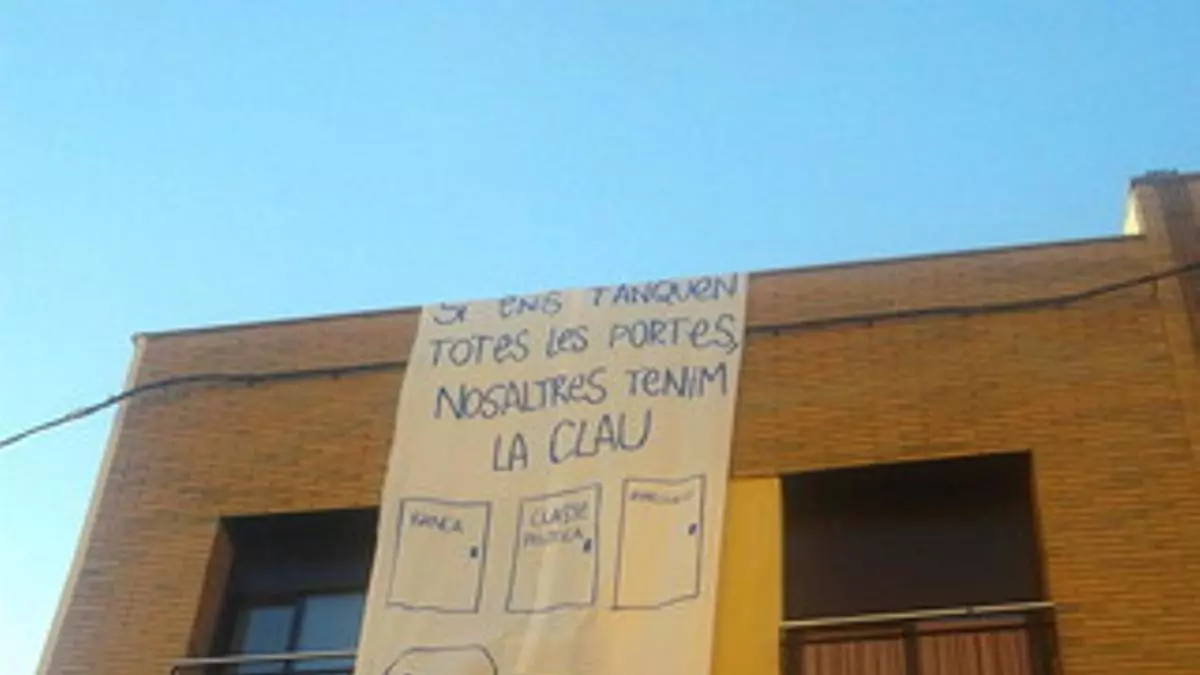 SI ENS TANQUEN
TOTES LES PORTES,
NOSALTRES TENIM
LA CLAU
BANCA
CLASSE
POLÍTICA